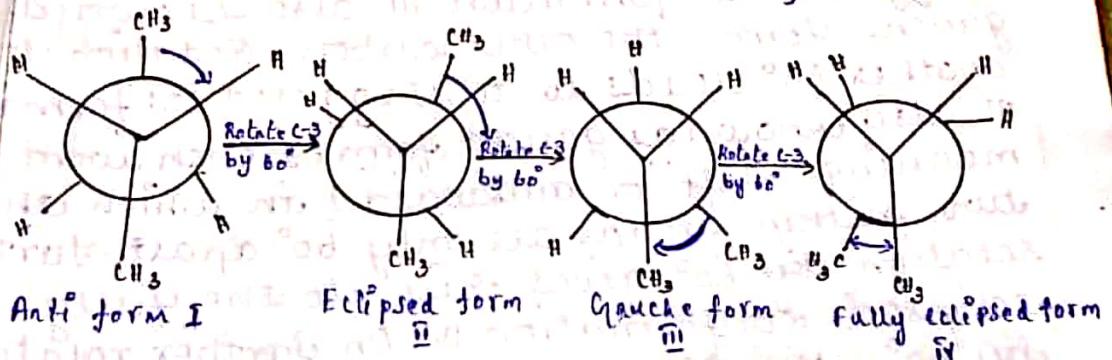 CH3
H
H
H
H
CH3
Anti form I
Rotate C-3
by 60°
CH3
H
H
H
CH3
H
Eclipsed form
II
Rotate C-3
by 60°
H
H
H
H
CH3
CH3
Gauche form
III
Rotate C-3
by 60°
H
H
H
H
H3C
CH3
Fully eclipsed form
IV